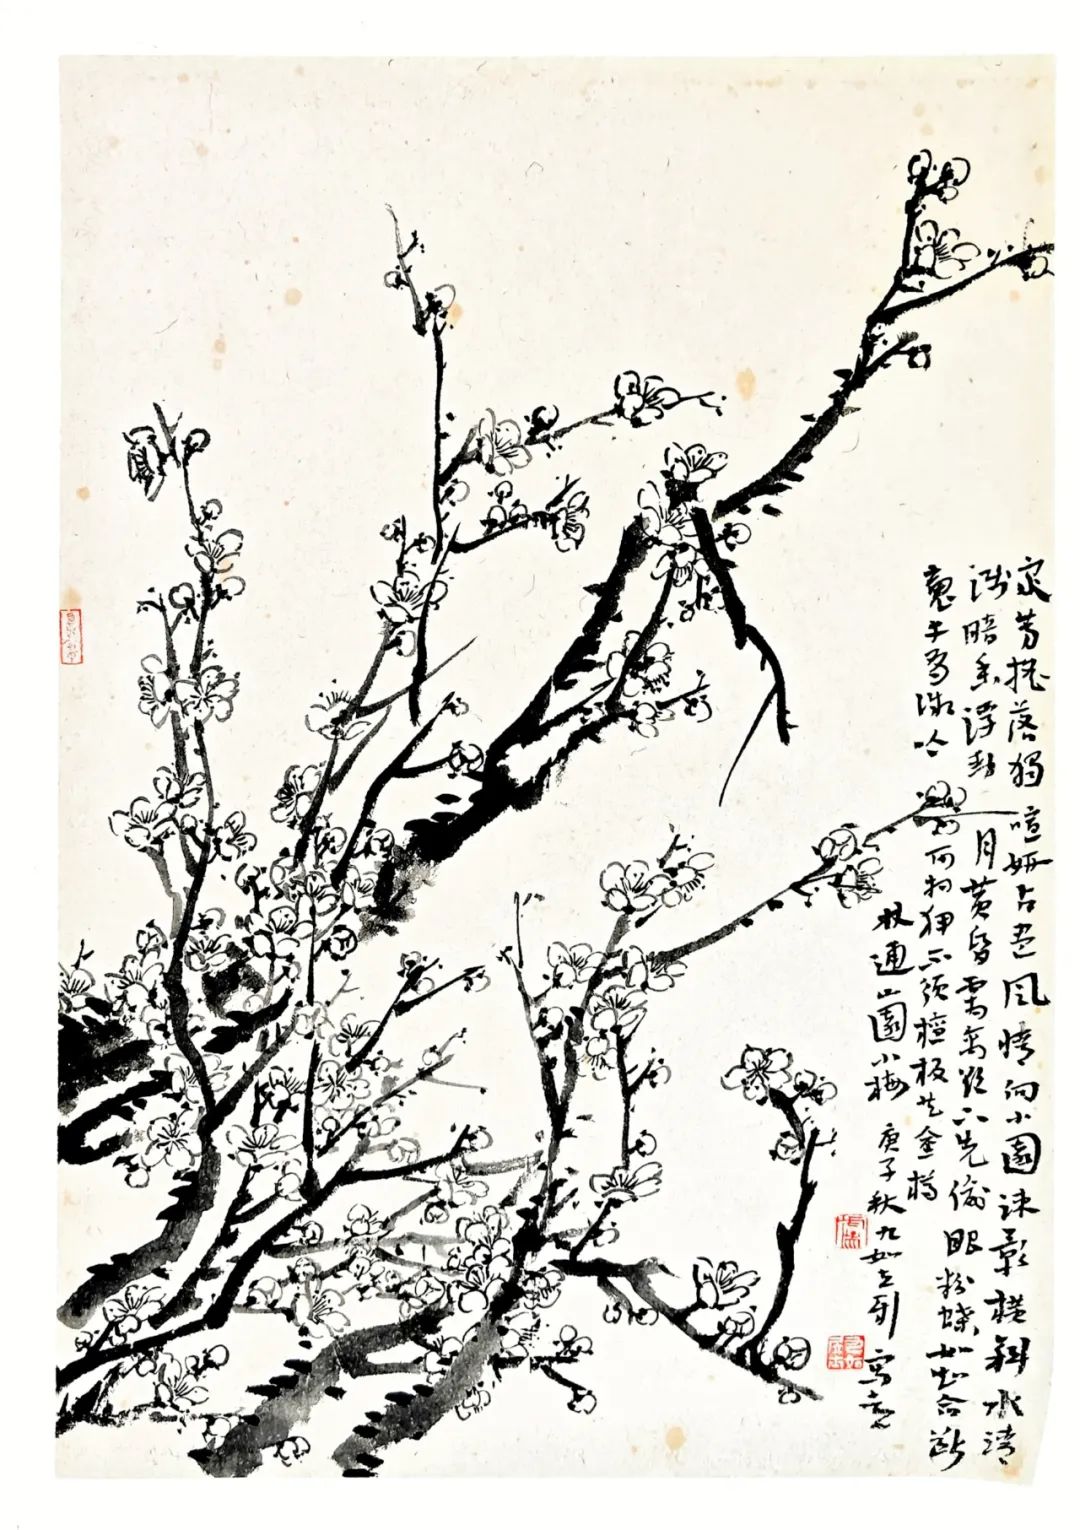 衆芳摇落獨暄妍占盡風情向小園疎影横斜水清
浅暗香浮動月黄昏霜禽欲下先偷眼粉蝶如知合断
魂幸有微吟可相狎不須檀板共金樽
林逋山園小梅 庚子秋九如寫意